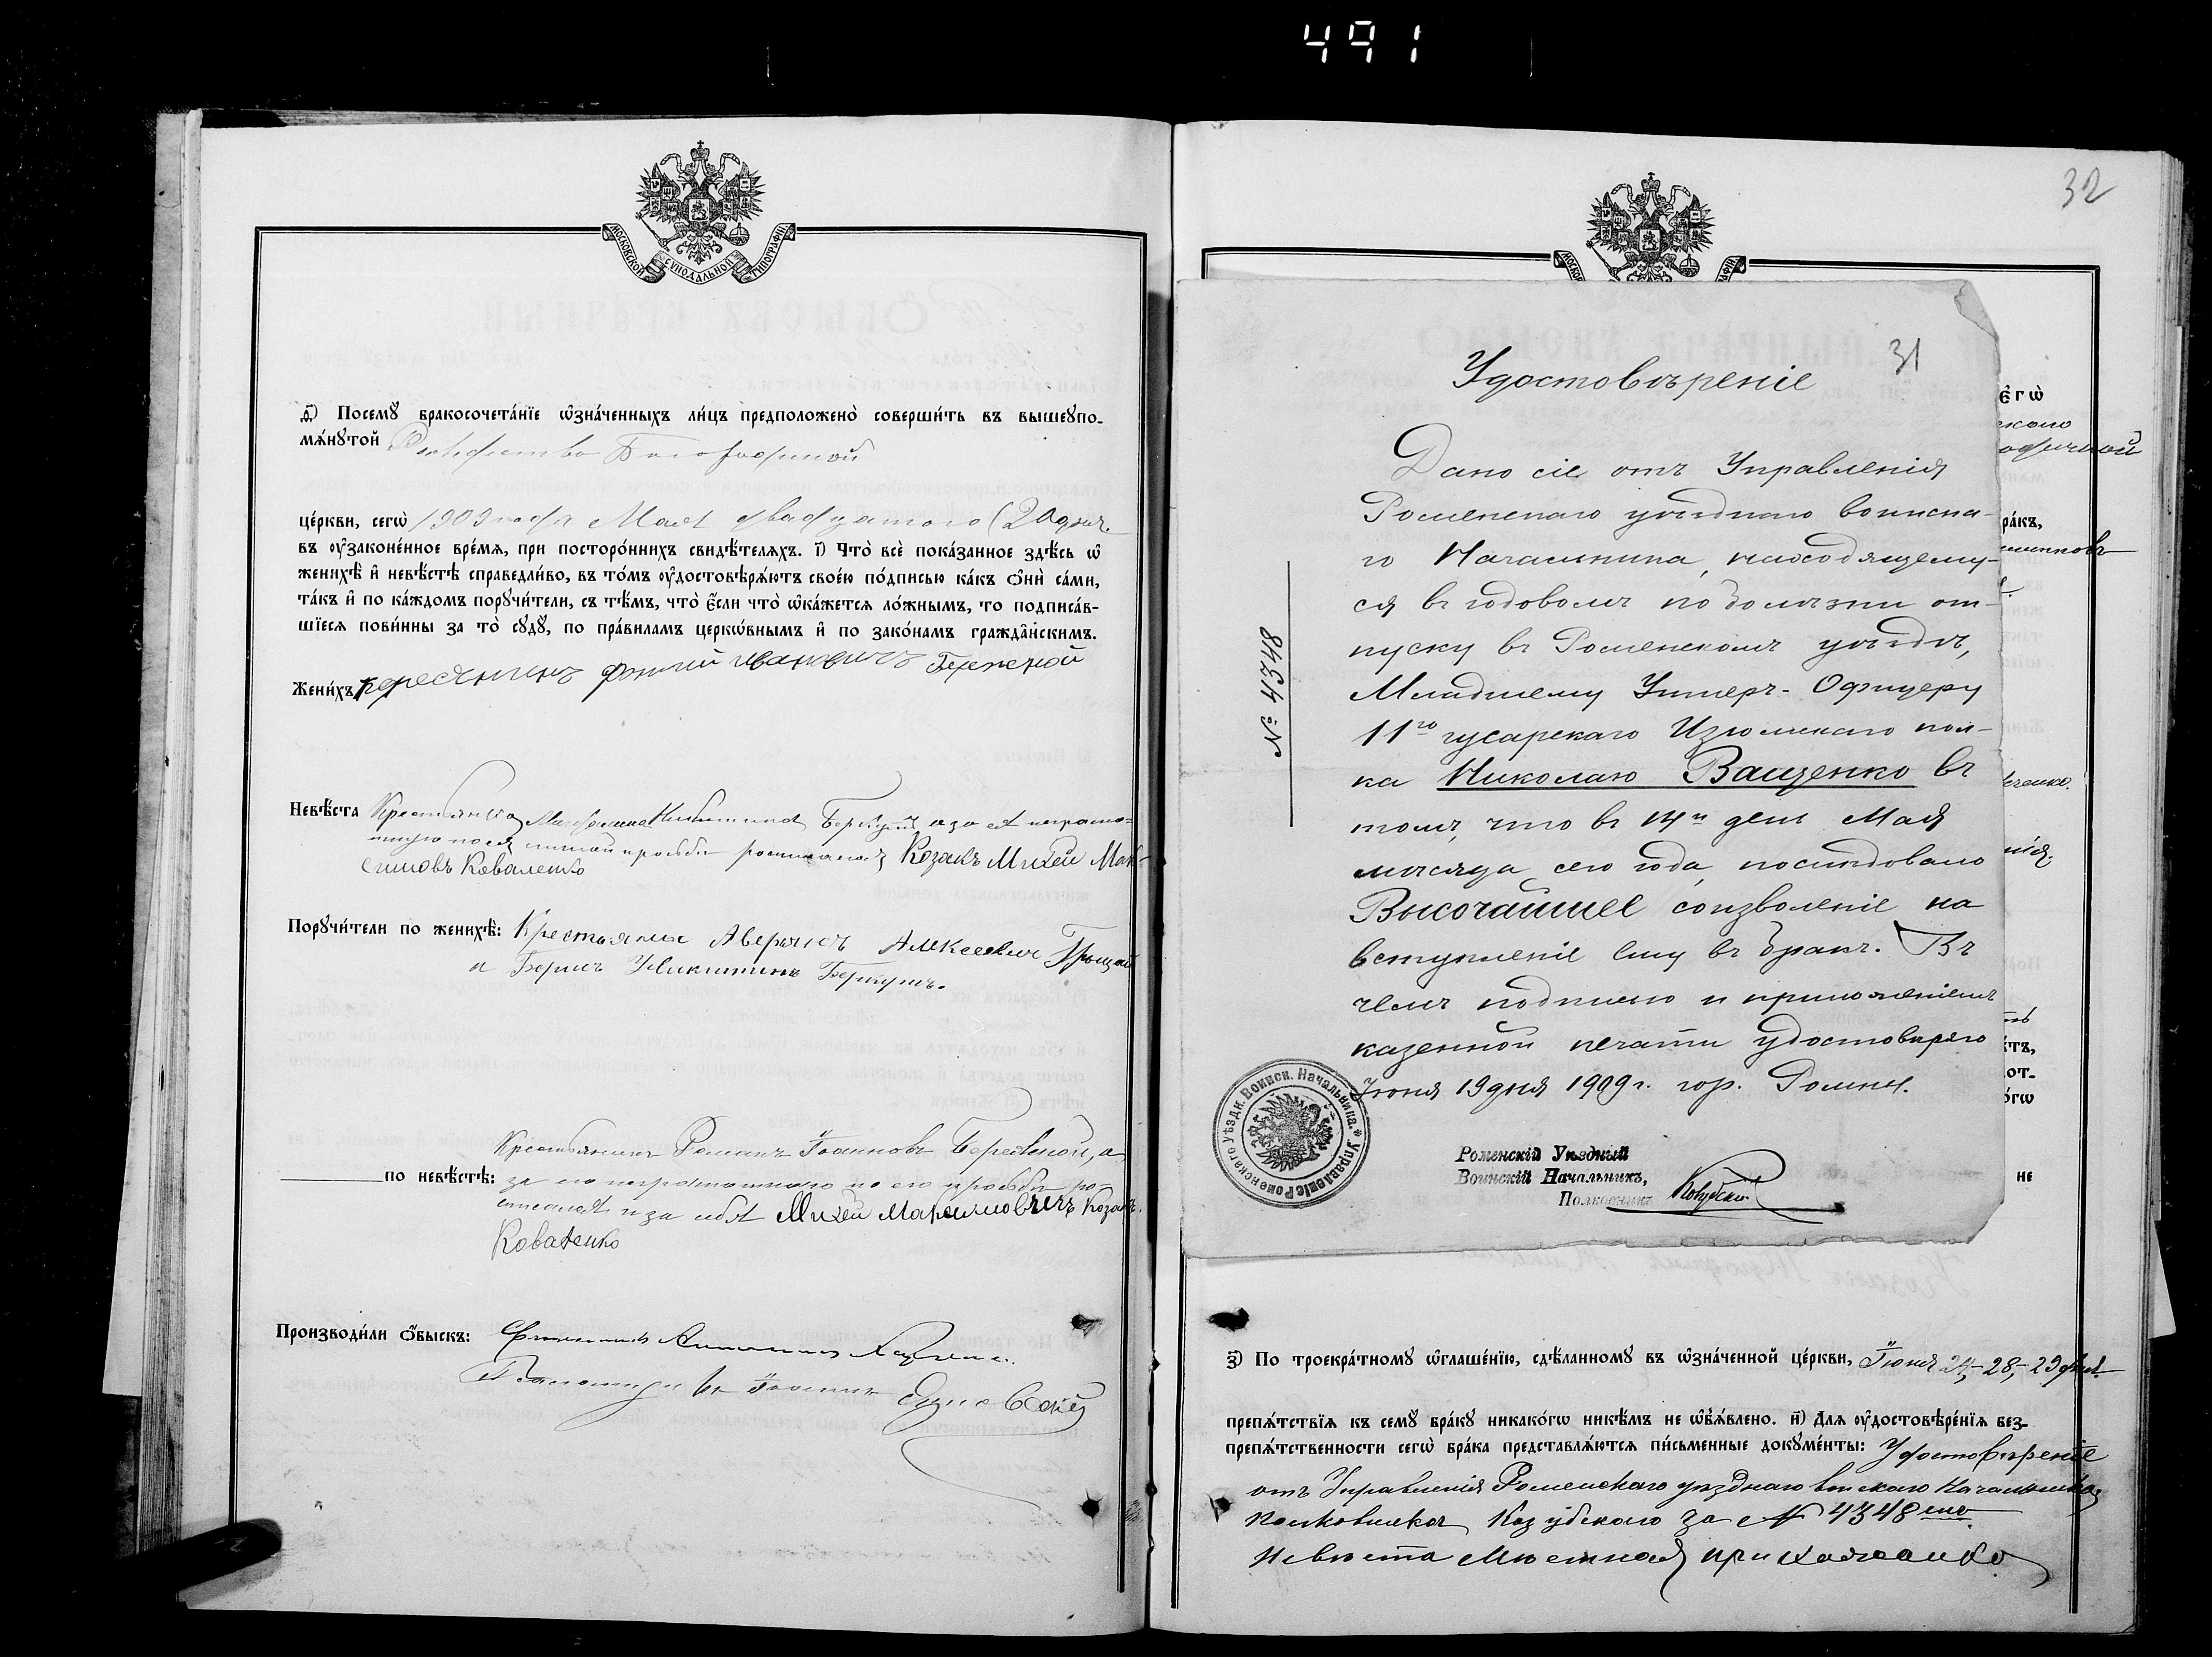 491
МОСКОВСКОЙ СУНОДАЛЬНОЙ ТИПОГРАФІИ
Посемꙋ̀ бракосочета́нїе ѡ҆зна́ченныхъ ли́цъ предположено̀ соверши́ть въ вышеꙋпо-
мѧ́нꙋтой Рождество Богородичной
це́ркви, сегѡ̀ 1909 года Мая двадцатого (20 дня).
въ ᲂу҆законе́нное вре́мѧ, при посторо́ннихъ свидѣ́телѧхъ. і҃) Что̀ всѐ пока́занное здѣ́сь ѡ҆
женихѣ̀ и҆ невѣ́стѣ справедли́во, въ то́мъ ᲂу҆достовѣрѧ́ютъ свое́ю по́дписью ка́къ ѻ҆нѝ са́ми,
та́къ и҆ по ка́ждомъ порꙋчи́тели, съ тѣ́мъ, что̀ є҆́сли что̀ ѡ҆ка́жетсѧ ло́жнымъ, то подписа́в-
шїесѧ пови́нны за то̀ сꙋдꙋ̀, по пра́виламъ церко́внымъ и҆ по зако́намъ гражда̑нскимъ.
Жени́хъ Ивановичъ Бережной
Невѣ́ста Крестьянка Никитина Беркутъ, а за ея неграмо-
тную по ея личной просьбѣ росписался Козакъ Михей Мак-
симовъ Коваленко
Порꙋчи́тели по женихѣ̀: Крестьяне Алексеевичъ
и Никитинъ Беркутъ.
Крестьянинъ Романъ Іоанновъ Бережной, а
по невѣ́стѣ: за его неграмотного по его просьбѣ ро-
списался и за себя Михей Максимовичъ Козакъ
Коваленко
Производи́ли ѻ҆́быскъ:
Іоаннъ
32
МОСКОВ
РАФІИ
31
Удостовѣреніе
Дано сіе отъ Управленія
Роменскаго уѣзднаго воинска-
го Начальника, находящему-
ся въ годовомъ по болѣзни от-
пуску въ Роменскомъ уѣздѣ,
Младшему Унтеръ-Офицеру
11го гусарскаго Изюмскаго пол-
ка Николаю Ващенко въ
томъ, что въ 14й день Мая
мѣсяца сего года послѣдовало
Высочайшее соизволеніе на
вступленіе ему въ бракъ. Въ
чемъ подписью и приложеніемъ
казенной печати удостовѣряю
Іюня 19 дня 1909 г. гор. Ромны.
№ 4348
Управленіе Роменскаго Уѣздн. Воинск. Начальника.
Роменскій Уѣздный
Воинскій Начальникъ,
Полковникъ Козубскій
є҆гѡ̀
ра́къ,
тъ,
от-
не
з҃) По троекра́тномꙋ ѡ҆глаше́нїю, сдѣ́ланномꙋ въ ѡ҆зна́ченной це́ркви, Іюня 24, 28, 29 дня
препѧ́тствїѧ къ семꙋ̀ бра́кꙋ никако́гѡ никѣ́мъ не ѡ҆б̾ѧ́влено. и҃) Длѧ ᲂу҆достовѣре́нїѧ без-
препѧ́тственности сегѡ̀ бра́ка представлѧ́ютсѧ пи́сьменные докꙋме́нты: Удостовѣреніе
отъ Управленія Роменскаго уѣзднаго воинскаго Начальника
полковника Козубскаго за № 4348мъ.
Невѣста мѣстная прихожанка.